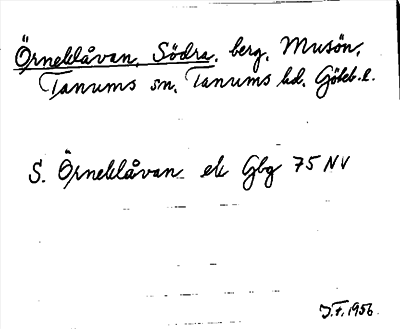 Örneklåvan, Södra, berg, Musön,
Tanums sn, Tanums hd. Göteb. l.
S. Örneklåvan ek Gbg 75 NV
J.F. 1956.